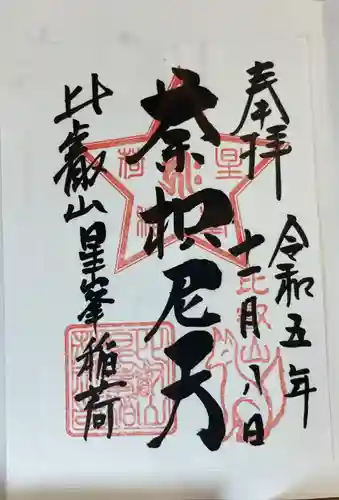 奉拝
令和五年
十一月八日
比叡山
荼枳尼天
比叡山星峯稲荷